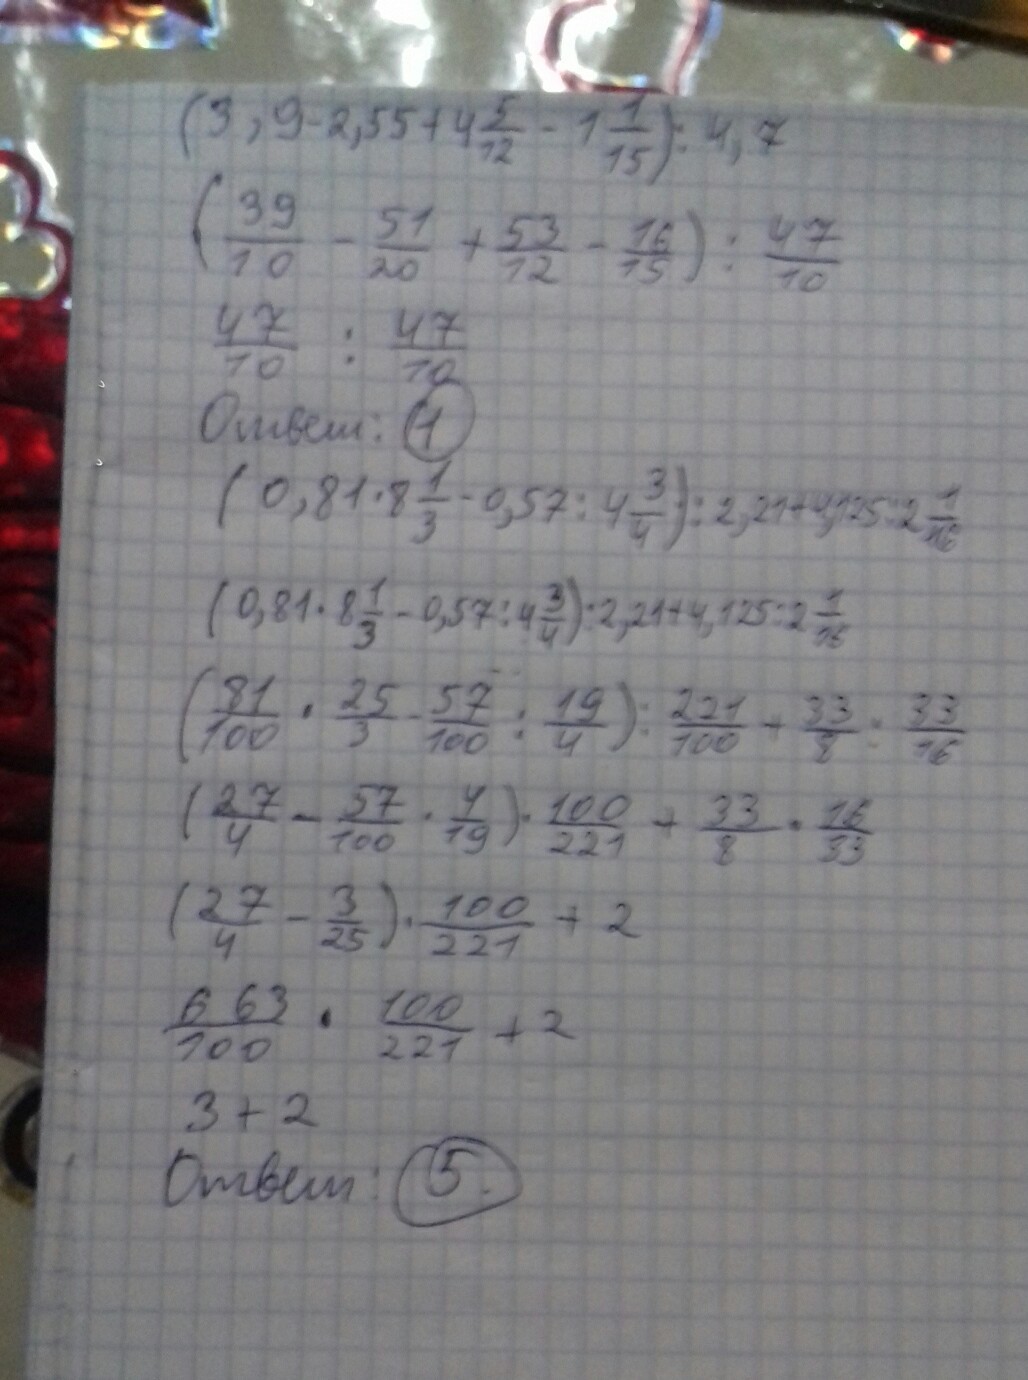 (3,9-2,55+4 5/12 - 1 1/15):4,7
(39/10 - 51/20 + 53/12 - 16/15) : 47/10
47/10 : 47/10
Ответ: 1
(0,81·8 1/3 - 0,57:4 3/4):2,21+4,125:2 1/16
(0,81·8 1/3 - 0,57:4 3/4):2,21+4,125:2 1/16
(81/100 · 25/3 - 57/100 : 19/4) : 221/100 + 33/8 : 33/16
(27/4 - 57/100 · 4/19) · 100/221 + 33/8 · 16/33
(27/4 - 3/25) · 100/221 + 2
663/100 · 100/221 + 2
3+2
Ответ: 5.